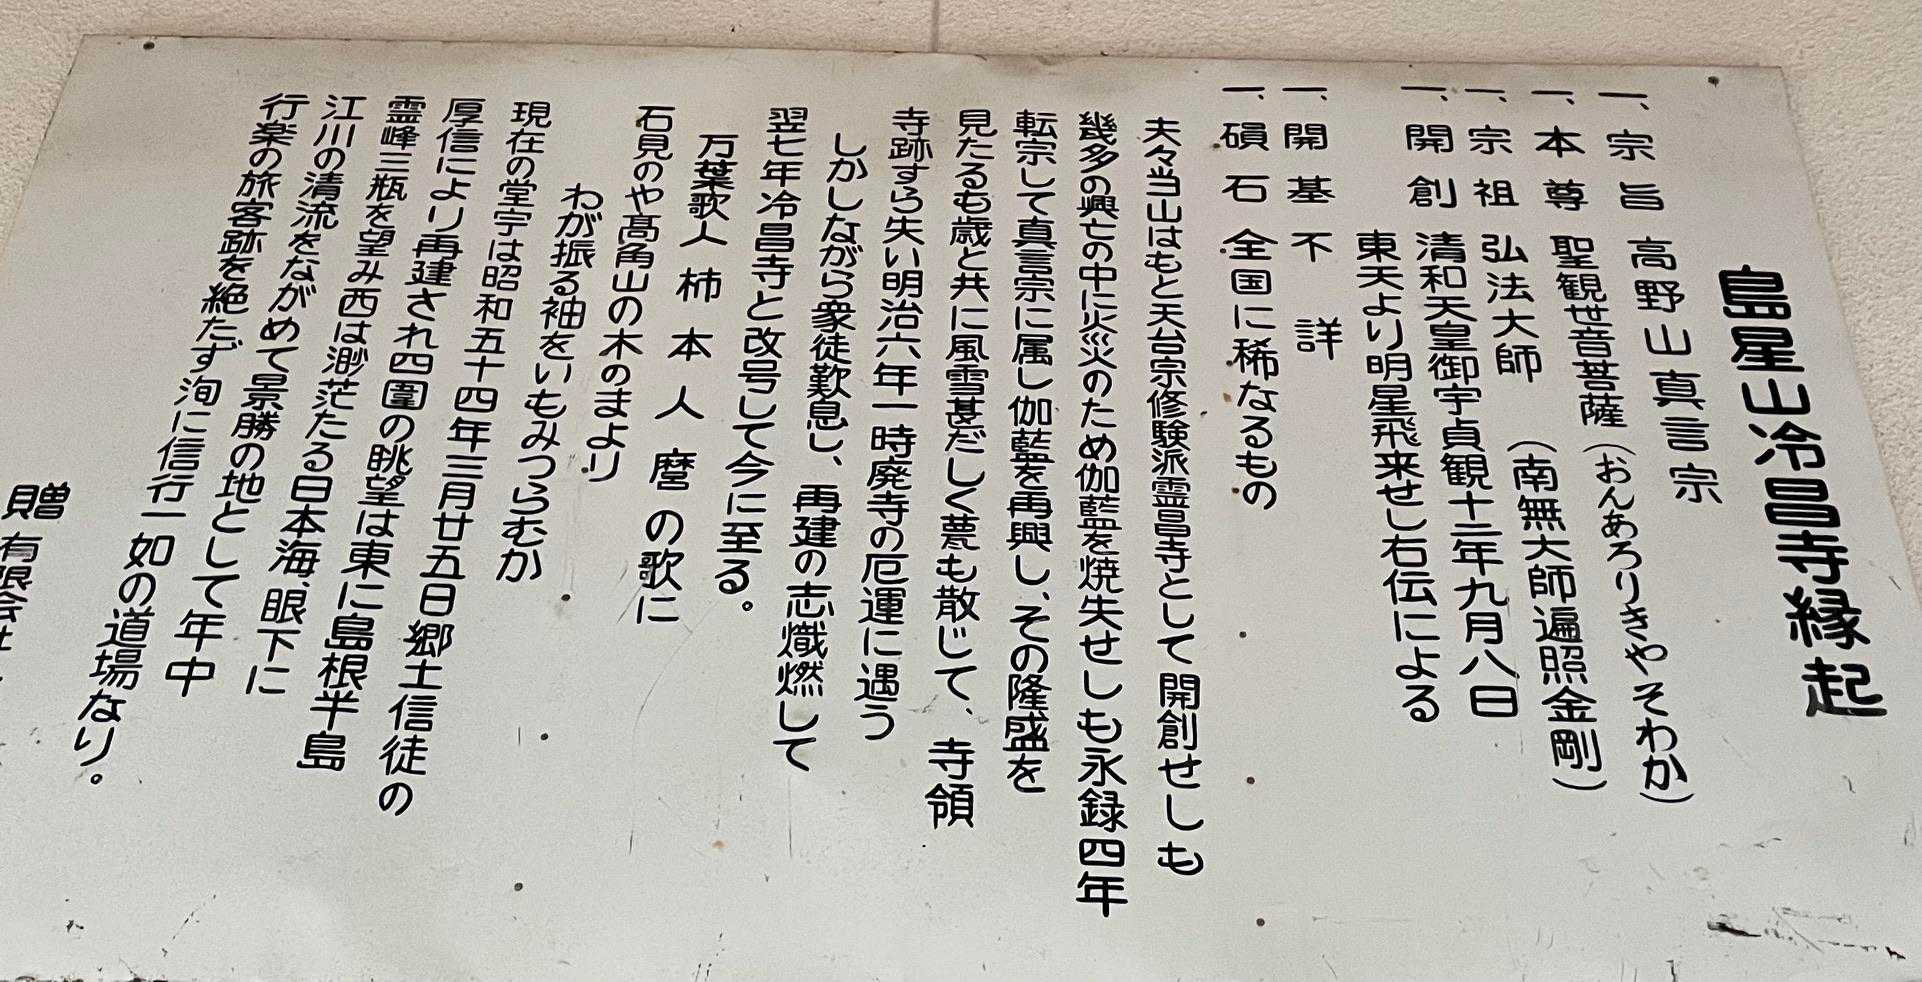 島星山冷昌寺縁起
一、宗旨 高野山真言宗
一、本尊 聖観世音菩薩(おんあろりきやそわか)
一、宗祖 弘法大師 (南無大師遍照金剛)
一、開創 清和天皇御宇貞観十二年九月八日
東天より明星飛来せし右伝による
一、開基 不詳
一、磒石 全国に稀なるもの
夫々当山はもと天台宗修験派霊昌寺として開創せしも
幾多の興亡の中に火災のため伽藍を焼失せしも永録四年
転宗して真言宗に属し伽藍を再興し、その隆盛を
見たるも歳と共に風雪甚だしく甍も散じて、寺領
寺跡すら失い明治六年一時廃寺の厄運に遇う
しかしながら衆徒歎息し、再建の志熾燃して
翌七年冷昌寺と改号して今に至る。
万葉歌人 柿本人麿の歌に
石見のや髙角山の木のまより
わが振る袖をいもみつらむか
現在の堂宇は昭和五十四年三月廿五日郷土信徒の
厚信により再建され四圍の眺望は東に島根半島
霊峰三瓶を望み西は渺茫たる日本海、眼下に
江川の清流をながめて景勝の地として年中
行楽の旅客跡を絶たず洵に信行一如の道場なり。
贈 有限会社